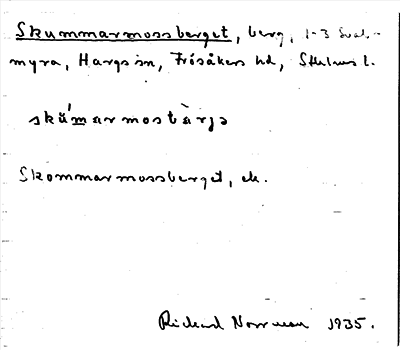 Skummarmossberget, berg, 1-3 Sval-
myra, Hargs sn, Frösåkers hd, Sthlms l.
skúmarmosbàrjə
Skommarmossberget, ek.
Rickard Norrman 1935.